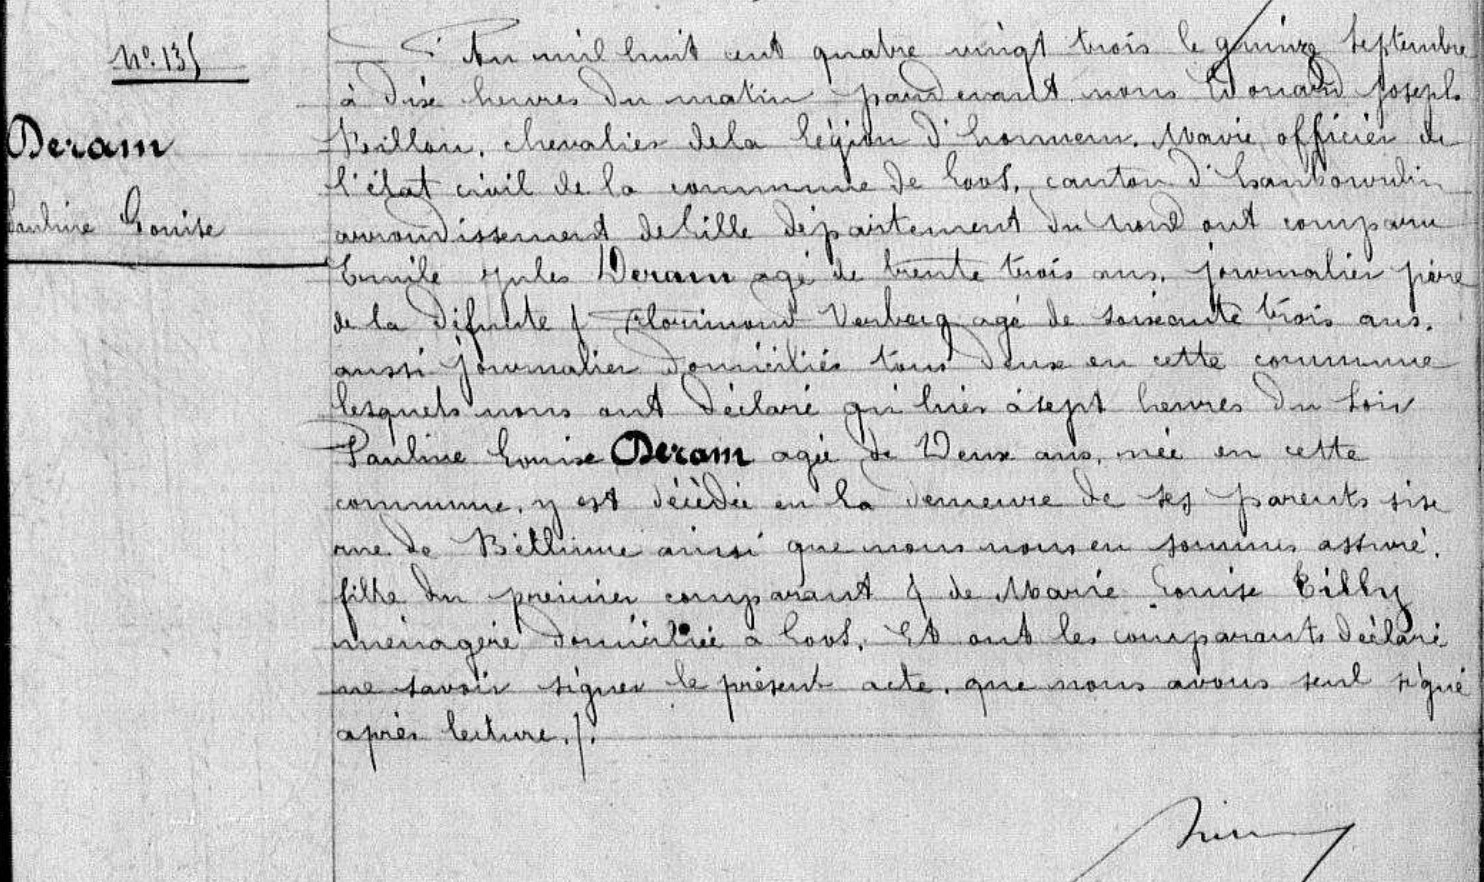 N°. 135
Deram
Pauline Louise
L'An mil huit cent quatre vingt trois le quinze Septembre
à dix heures du matin pardevant nous Edouard Joseph
Billon, chevalier de la légion d'honneur, Maire officier de
l'état civil de la commune de Loos, canton d'haubourdin
arrondissement de Lille département du Nord ont comparu
Emile Jules Deram agé de trente trois ans, journalier père
de la défunte & Florimond Verbecq agé de soixante trois ans.
aussi journalier domiciliés tous deux en cette commune
lesquels nous ont déclaré qu'hier à sept heures du soir
Pauline Louise Deram agée de Deux ans, née en cette
commune, y est décédée en la demeure de ses parents sise
rue de Béthune ainsi que nous nous en sommes assuré.
fille du premier comparant & de Marie Louise Tilly
ménagère domiciliée à Loos. Et ont les comparants déclaré
ne savoir signer le présent acte, que nous avons seul signé
après lecture./.